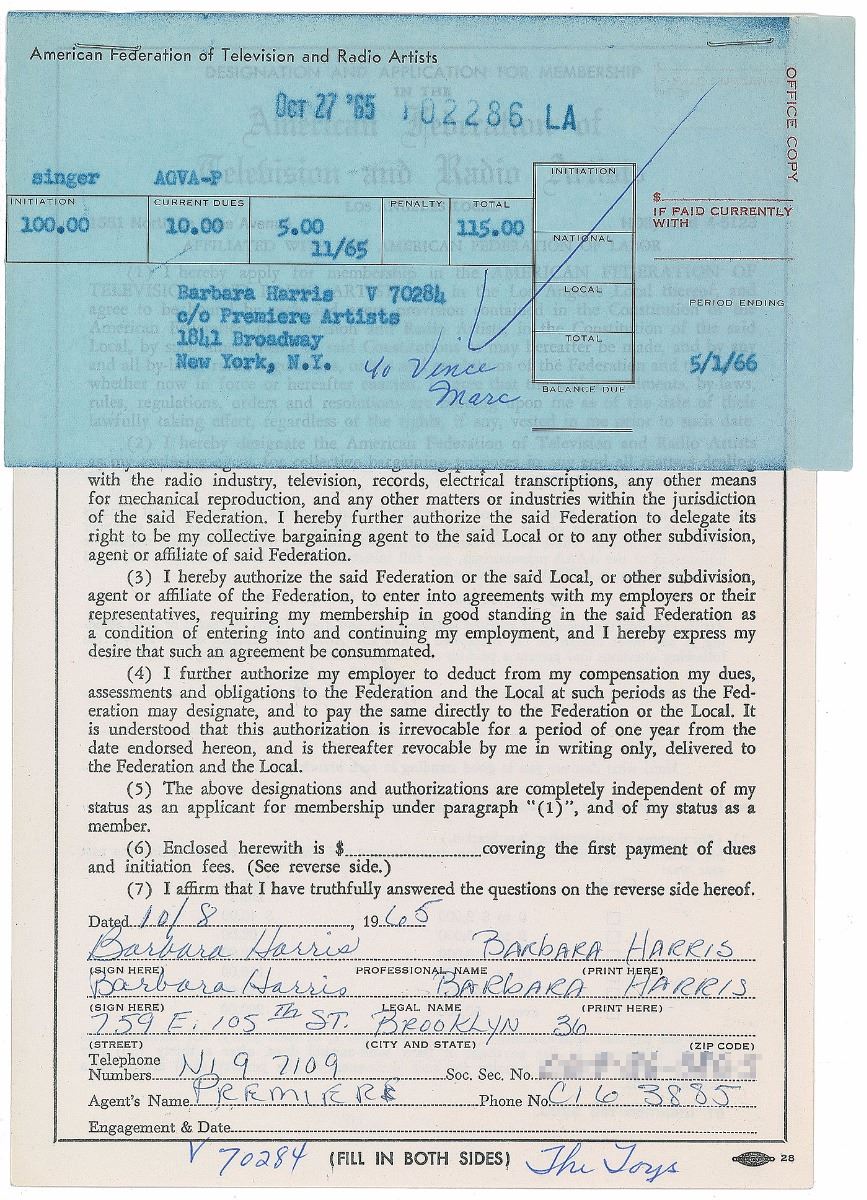 American Federation of Television and Radio Artists
OFFICE COPY
OCT 27 '65 102286 LA
singer AGVA-P
INITIATION CURRENT DUES PENALTY TOTAL
100.00 10.00 5.00 115.00
11/65
INITIATION
NATIONAL
LOCAL
TOTAL
BALANCE DUE
$
IF PAID CURRENTLY
WITH
PERIOD ENDING
5/1/66
Barbara Harris V 70284
c/o Premiere Artists
1841 Broadway
New York, N.Y.
Vince
Marc
DESIGNATION AND APPLICATION FOR MEMBERSHIP
IN THE
American Federation of
Television and Radio Artists
with the radio industry, television, records, electrical transcriptions, any other means
for mechanical reproduction, and any other matters or industries within the jurisdiction
of the said Federation. I hereby further authorize the said Federation to delegate its
right to be my collective bargaining agent to the said Local or to any other subdivision,
agent or affiliate of said Federation.
(3) I hereby authorize the said Federation or the said Local, or other subdivision,
agent or affiliate of the Federation, to enter into agreements with my employers or their
representatives, requiring my membership in good standing in the said Federation as
a condition of entering into and continuing my employment, and I hereby express my
desire that such an agreement be consummated.
(4) I further authorize my employer to deduct from my compensation my dues,
assessments and obligations to the Federation and the Local at such periods as the Fed-
eration may designate, and to pay the same directly to the Federation or the Local. It
is understood that this authorization is irrevocable for a period of one year from the
date endorsed hereon, and is thereafter revocable by me in writing only, delivered to
the Federation and the Local.
(5) The above designations and authorizations are completely independent of my
status as an applicant for membership under paragraph "(1)", and of my status as a
member.
(6) Enclosed herewith is $ covering the first payment of dues
and initiation fees. (See reverse side.)
(7) I affirm that I have truthfully answered the questions on the reverse side hereof.
Dated 10/8, 1965
Barbara Harris BARBARA HARRIS
(SIGN HERE) PROFESSIONAL NAME (PRINT HERE)
Barbara Harris BARBARA HARRIS
(SIGN HERE) LEGAL NAME (PRINT HERE)
759 E. 105TH ST. BROOKLYN 36
(STREET) (CITY AND STATE) (ZIP CODE)
Telephone
Numbers NI 9 7109 Soc. Sec. No.
Agent's Name PREMIERE Phone No. CI 6 3885
Engagement & Date
V 70284 (FILL IN BOTH SIDES) The Toys
28